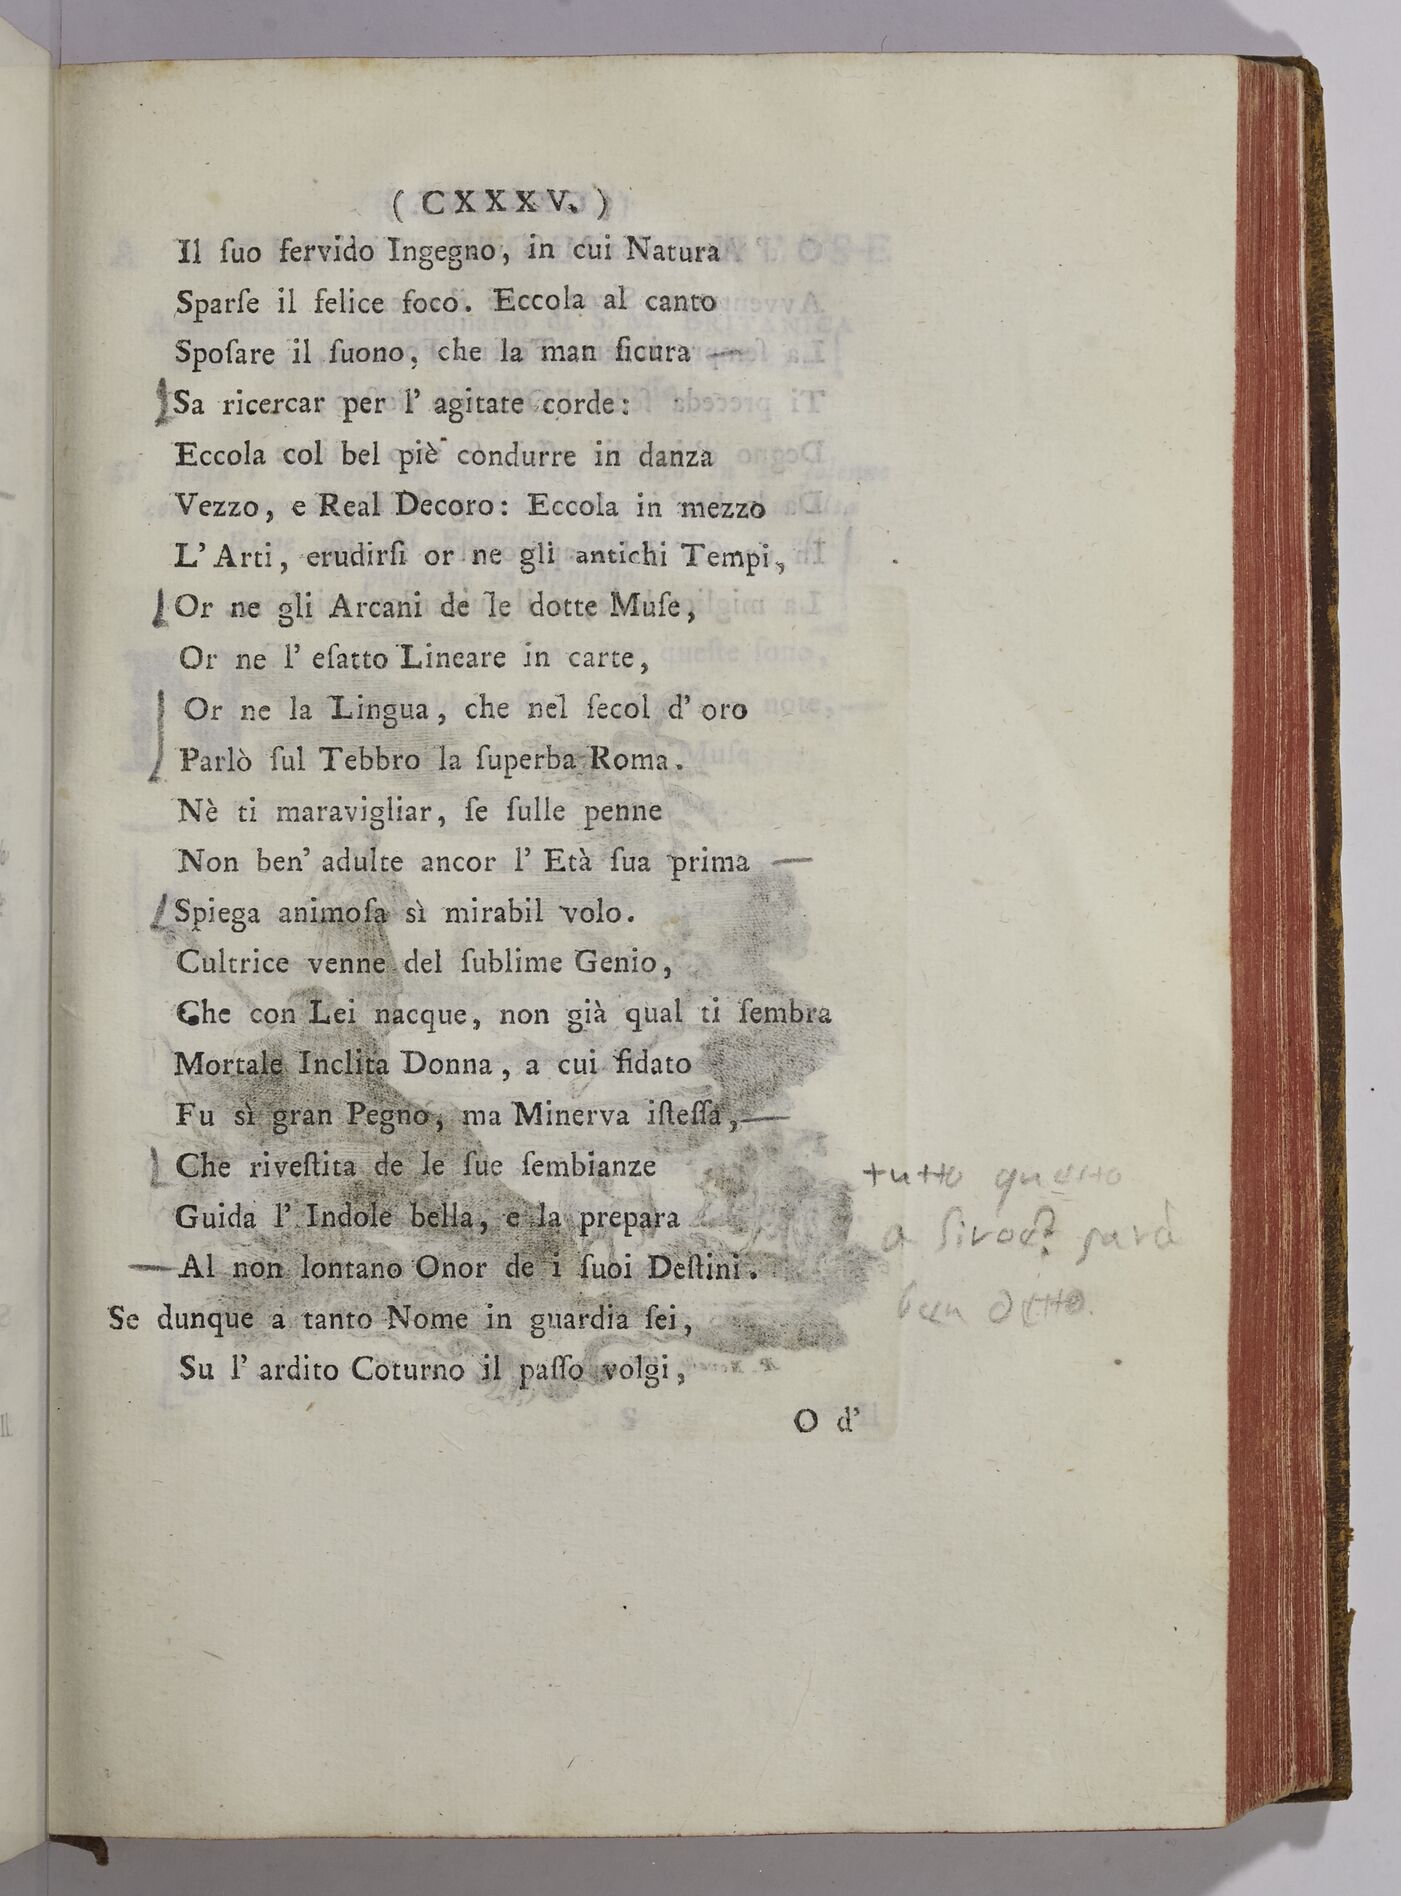 ( CXXXV. )
Il ſuo fervido Ingegno, in cui Natura
Sparſe il felice foco. Eccola al canto
Spoſare il ſuono, che la man ſicura —
Sa ricercar per l' agitate corde:
Eccola col bel piè condurre in danza
Vezzo, e Real Decoro: Eccola in mezzo
L' Arti, erudirſi or ne gli antichi Tempi,
Or ne gli Arcani de le dotte Muſe,
Or ne l' eſatto Lineare in carte,
Or ne la Lingua, che nel ſecol d' oro
Parlò ſul Tebbro la ſuperba Roma.
Nè ti maravigliar, ſe ſulle penne
Non ben' adulte ancor l' Età ſua prima —
Spiega animoſa sì mirabil volo.
Cultrice venne del ſublime Genio,
Che con Lei nacque, non già qual ti ſembra
Mortale Inclita Donna, a cui fidato
Fu sì gran Pegno, ma Minerva iſteſſa, —
Che riveſtita de le ſue ſembianze
tutto questo
Guida l' Indole bella, e la prepara
a sarà
— Al non lontano Onor de i ſuoi Deſtini.
ben ditto.
Se dunque a tanto Nome in guardia ſei,
Su l' ardito Coturno il paſſo volgi,
O d'